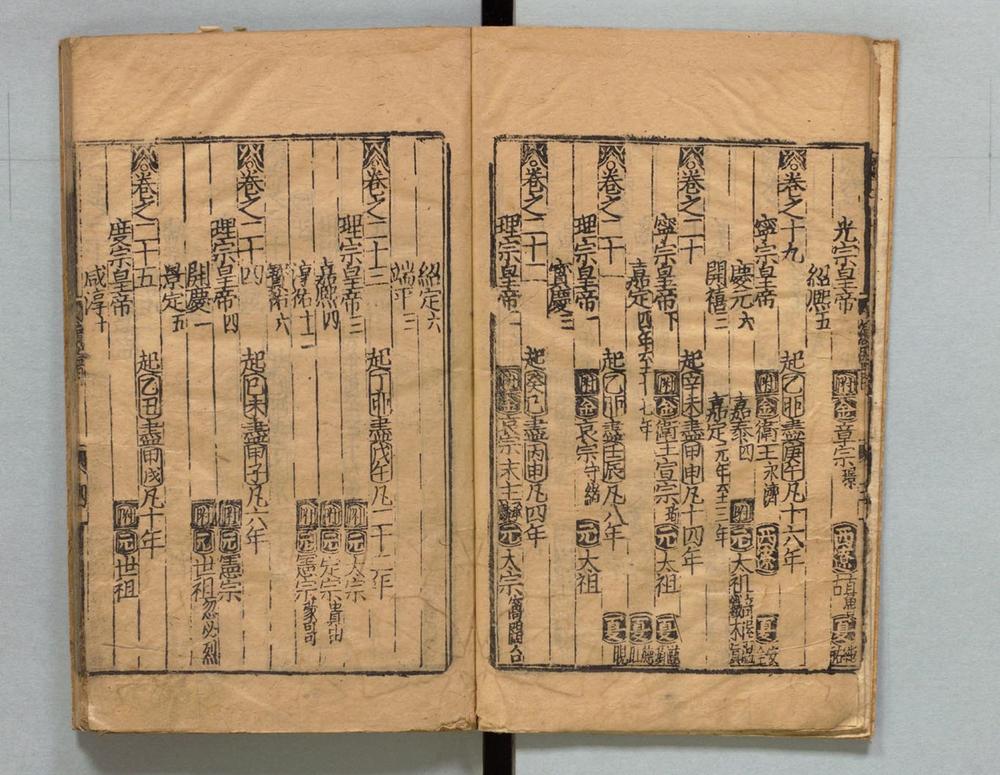 光宗皇帝 附 金 章宗璟 西遼 夏
紹熙五
卷之十九 起乙卯盡庚午凡十六年
寧宗皇帝 附 金 衛王永濟 西遼 夏
慶元六 嘉泰四 附 元 太祖
開禧三 嘉定元年至三年
卷之二十 起辛未盡甲申凡十四年
寧宗皇帝下 附 金 衛王宣宗珣 元 太祖 夏
嘉定四年至十七年 夏
卷之二十 起乙卯盡壬辰凡八年 夏
理宗皇帝一 附 金 哀宗守緒 元 太祖
寶慶三
卷之二十二 起癸巳盡丙申凡四年
理宗皇帝二 附 金 哀宗末主 元 太宗窩闊台
紹定六
端平三
卷之二十三 起丁卯盡戊午凡二十二年
理宗皇帝三 附 元 太宗
嘉熙四 附 元 定宗貴由
淳祐十二 附 元 憲宗蒙哥
寶祐六
卷之二十四 起己未盡甲子凡六年
理宗皇帝四 附 元 憲宗
開慶一 附 元 世祖忽必烈
景定五
卷之二十五 起乙丑盡甲戌凡十年
度宗皇帝 附 元 世祖
咸淳十